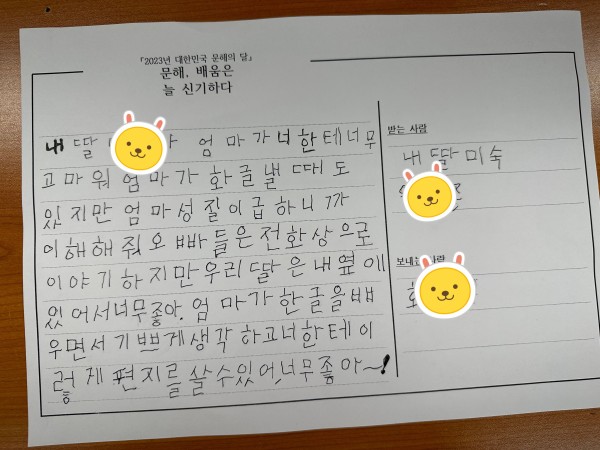 『2023년 대한민국 문해의 달』
문해, 배움은
늘 신기하다
내 딸 아 엄마가 너한테 너무
고마워 엄마가 화를 낼 때도
있지만 엄마 성질이 급하니까
이해해줘 오빠들은 전화상으로
이야기하지만 우리 딸은 내 옆에
있어서 너무 좋아. 엄마가 한글을 배
우면서 기쁘게 생각하고 너한테 이
렇게 편지를 쓸 수 있어, 너무 좋아~!
받는 사람
내 딸 미숙
보내는 사람